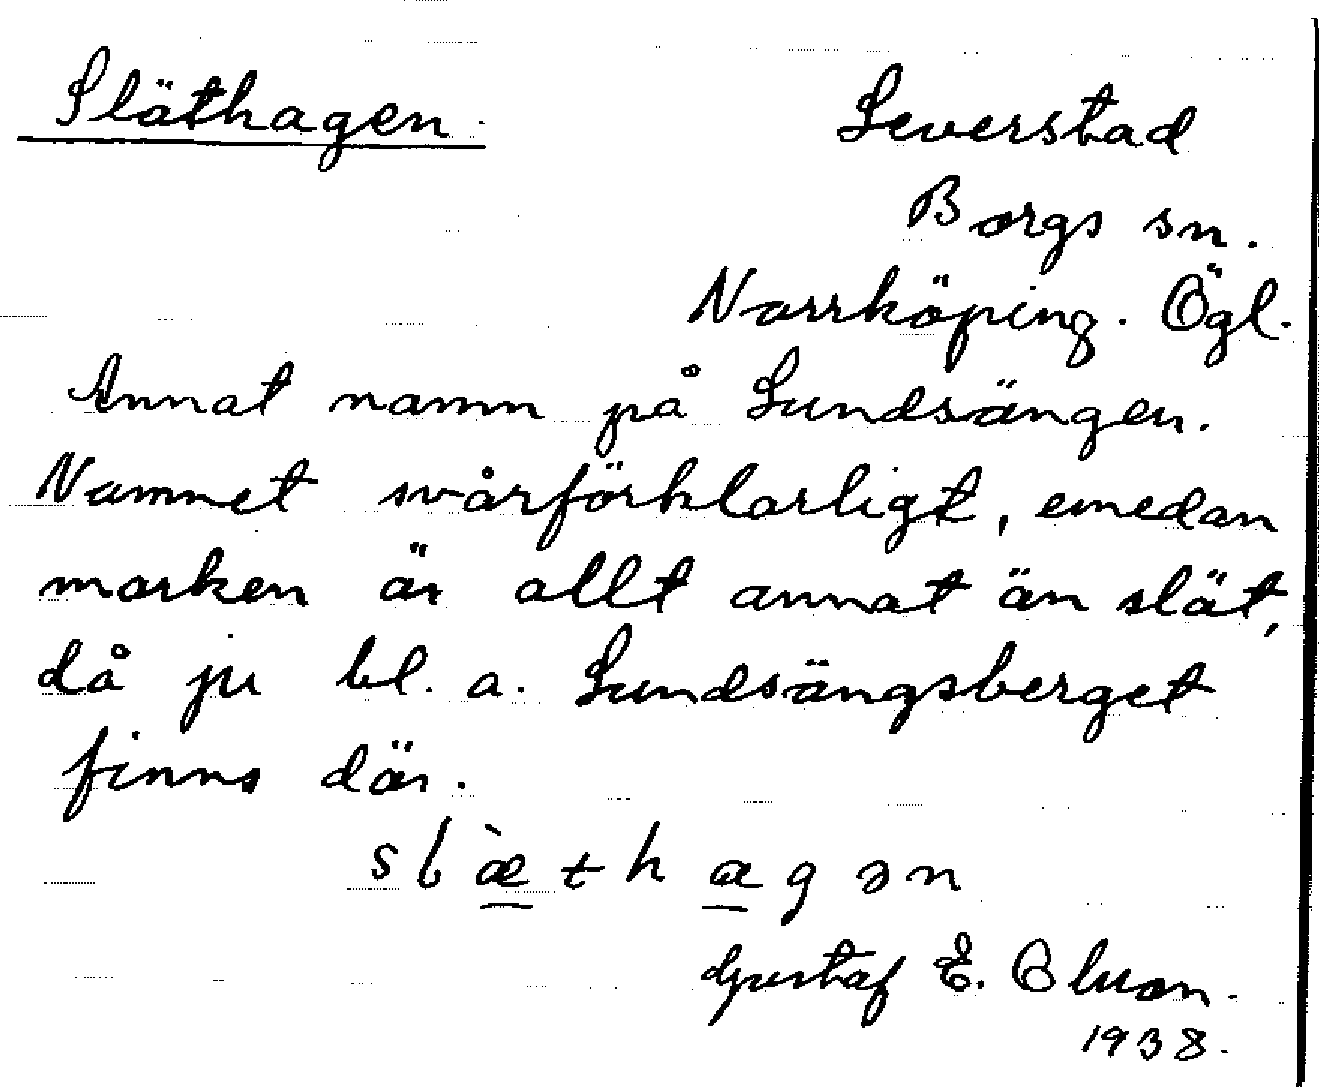 Släthagen.
Leverstad
Borgs sn.
Norrköping. Ögl.
Annat namn på Lundsängen.
Namnet svårförklarligt, emedan
marken är allt annat än slät,
då ju bl. a. Lundsängsberget
finns där.
slæ̀thagən
Gustaf E.
1938.